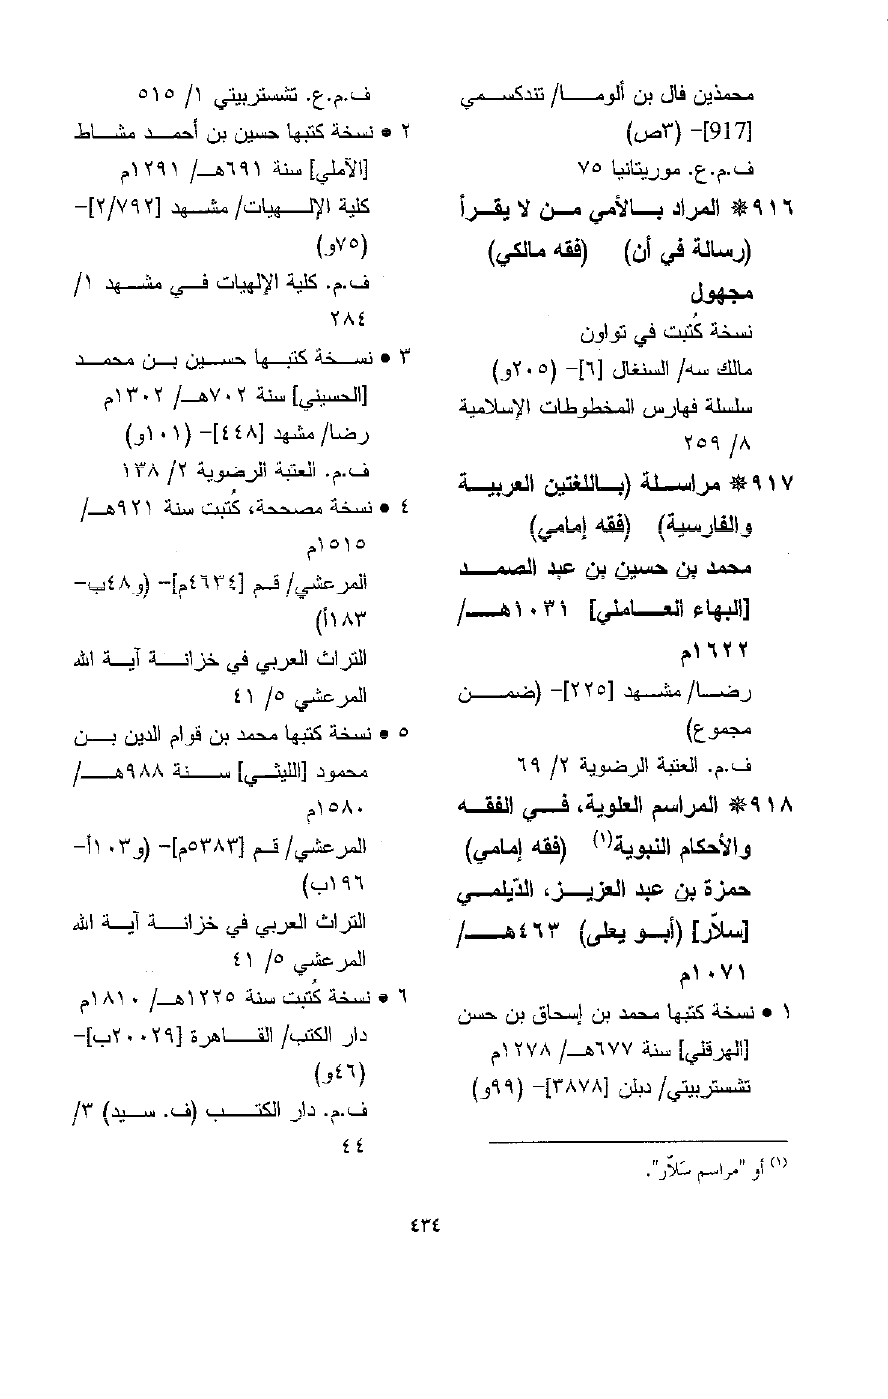 محمذين فال بن ألوما/ تندكسمي
[917]- (٣ص)
ف.م.ع. موريتانيا ٧٥
٩١٦* المراد بالأمي من لا يقرأ
(رسالة في أن) (فقه مالكي)
مجهول
نسخة كُتبت في تواون
مالك سه/ السنغال [٦]- (٢٠٥و)
سلسلة فهارس المخطوطات الإسلامية
٨/ ٢٥٩
٩١٧* مراسلة (باللغتين العربية
والفارسية) (فقه إمامي)
محمد بن حسين بن عبد الصمد
[البهاء العاملي] ١٠٣١هـ/
١٦٢٢م
رضا/ مشهد [٢٢٥]- (ضمن
مجموع)
ف.م. العتبة الرضوية ٢/ ٦٩
٩١٨* المراسم العلوية، في الفقه
والأحكام النبوية(١) (فقه إمامي)
حمزة بن عبد العزيز، الدّيلمي
[سلاّر] (أبو يعلى) ٤٦٣هـ/
١٠٧١م
١ • نسخة كتبها محمد بن إسحاق بن حسن
[الهرقلي] سنة ٦٧٧هـ/ ١٢٧٨م
تشستربيتي/ دبلن [٣٨٧٨]- (٩٩و)
(١) أو "مراسم سَلاَّر".
ف.م.ع. تشستربيتي ١/ ٥١٥
٢ • نسخة كتبها حسين بن أحمد مشاط
[الآملي] سنة ٦٩١هـ/ ١٢٩١م
كلية الإلهيات/ مشهد [٢/٧٩٢]-
(٧٥و)
ف.م. كلية الإلهيات في مشهد ١/
٢٨٤
٣ • نسخة كتبها حسين بن محمد
[الحسيني] سنة ٧٠٢هـ/ ١٣٠٢م
رضا/ مشهد [٤٤٨]- (١٠١و)
ف.م. العتبة الرضوية ٢/ ١٣٨
٤ • نسخة مصححة، كُتبت سنة ٩٢١هـ/
١٥١٥م
المرعشي/ قم [٤٦٣٤م]- (و٤٨ب-
١٨٣أ)
التراث العربي في خزانة آية الله
المرعشي ٥/ ٤١
٥ • نسخة كتبها محمد بن قوام الدين بن
محمود [الليثي] سنة ٩٨٨هـ/
١٥٨٠م
المرعشي/ قم [٥٣٨٣م]- (و١٠٣أ-
١٩٦ب)
التراث العربي في خزانة آية الله
المرعشي ٥/ ٤١
٦ • نسخة كُتبت سنة ١٢٢٥هـ/ ١٨١٠م
دار الكتب/ القاهرة [٢٠٠٢٩ب]-
(٤٦و)
ف.م. دار الكتب (ف. سيد) ٣/
٤٤
٤٣٤